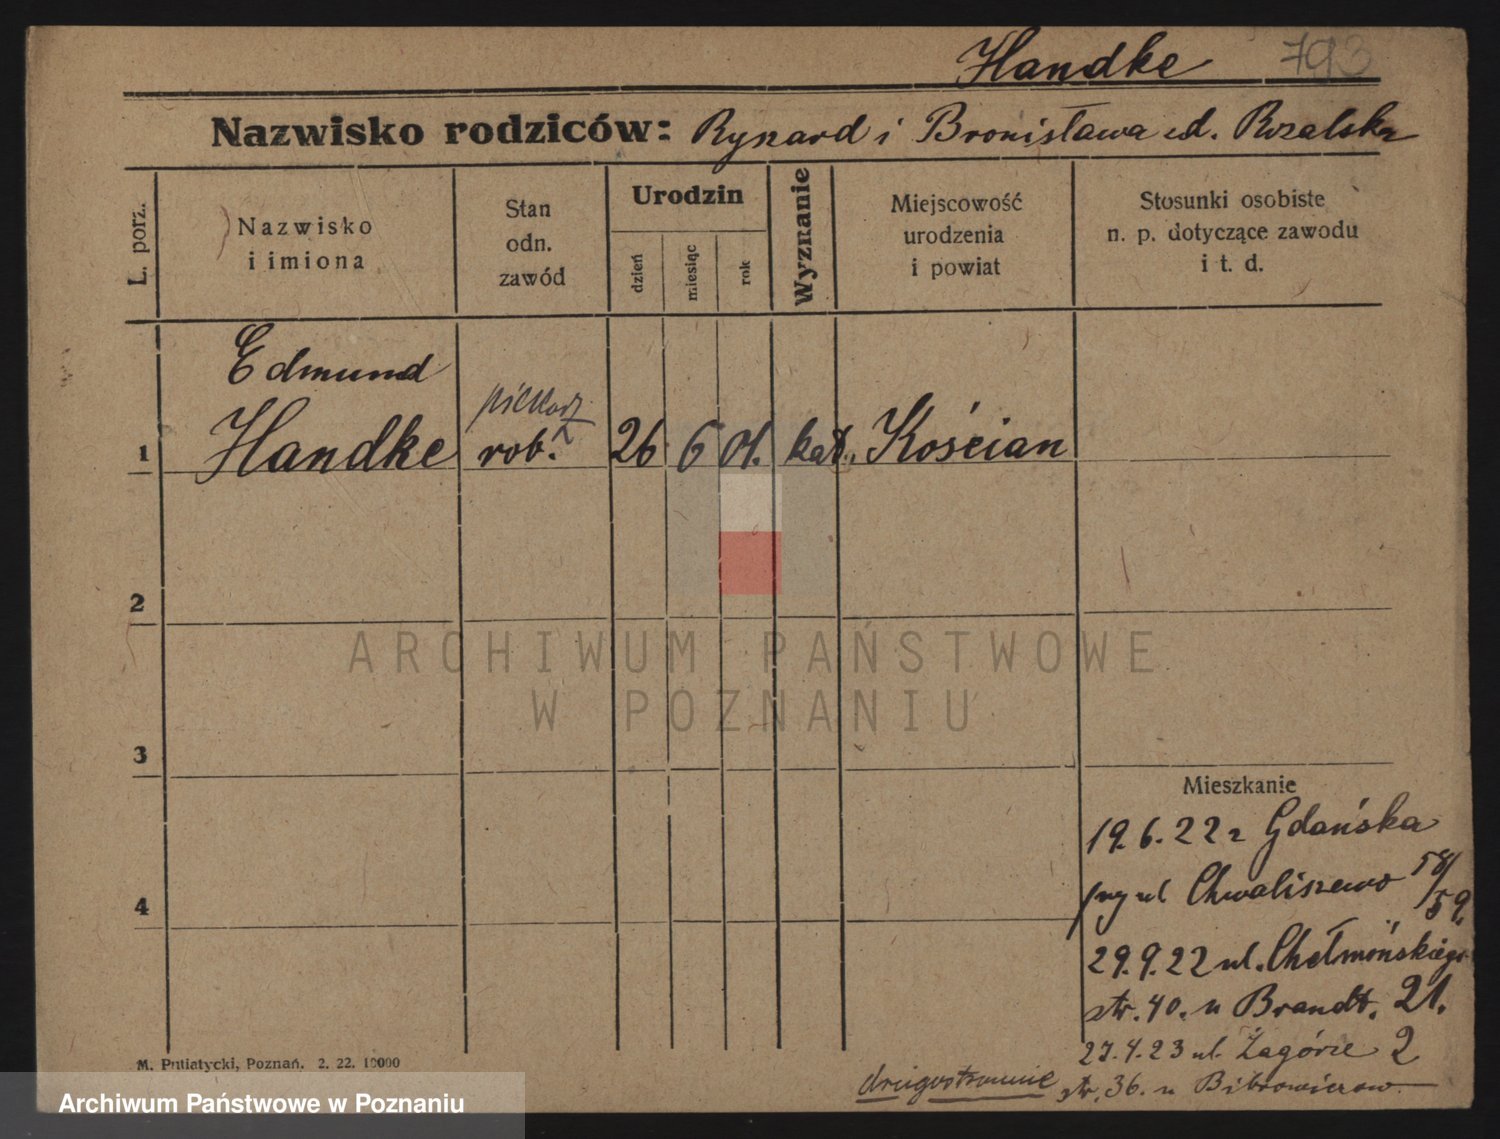 Handke 793
Nazwisko rodziców: Ryszard i Bronisława Rozalska
L. porz.
Nazwisko
i imiona
Stan
odn.
zawód
Urodzin
dzień
miesiąc
rok
Wyznanie
Miejscowość
urodzenia
i powiat
Stosunki osobiste
n. p. dotyczące zawodu
i t. d.
Edmund
1 Handke rob. 26 6 01. kat. Kościan
2
3
4
Mieszkanie
19.6.22 z Gdańska
ul Chwaliszewo 58/59.
29.9.22 ul. Chełmońskiego
str. 40. u Brandt. 21.
27.4.23 ul. Zagórze 2
drugostronnie str. 36. u
M. Putiatycki, Poznań. 2. 22. 10000
ARCHIWUM PAŃSTWOWE
W POZNANIU
Archiwum Państwowe w Poznaniu